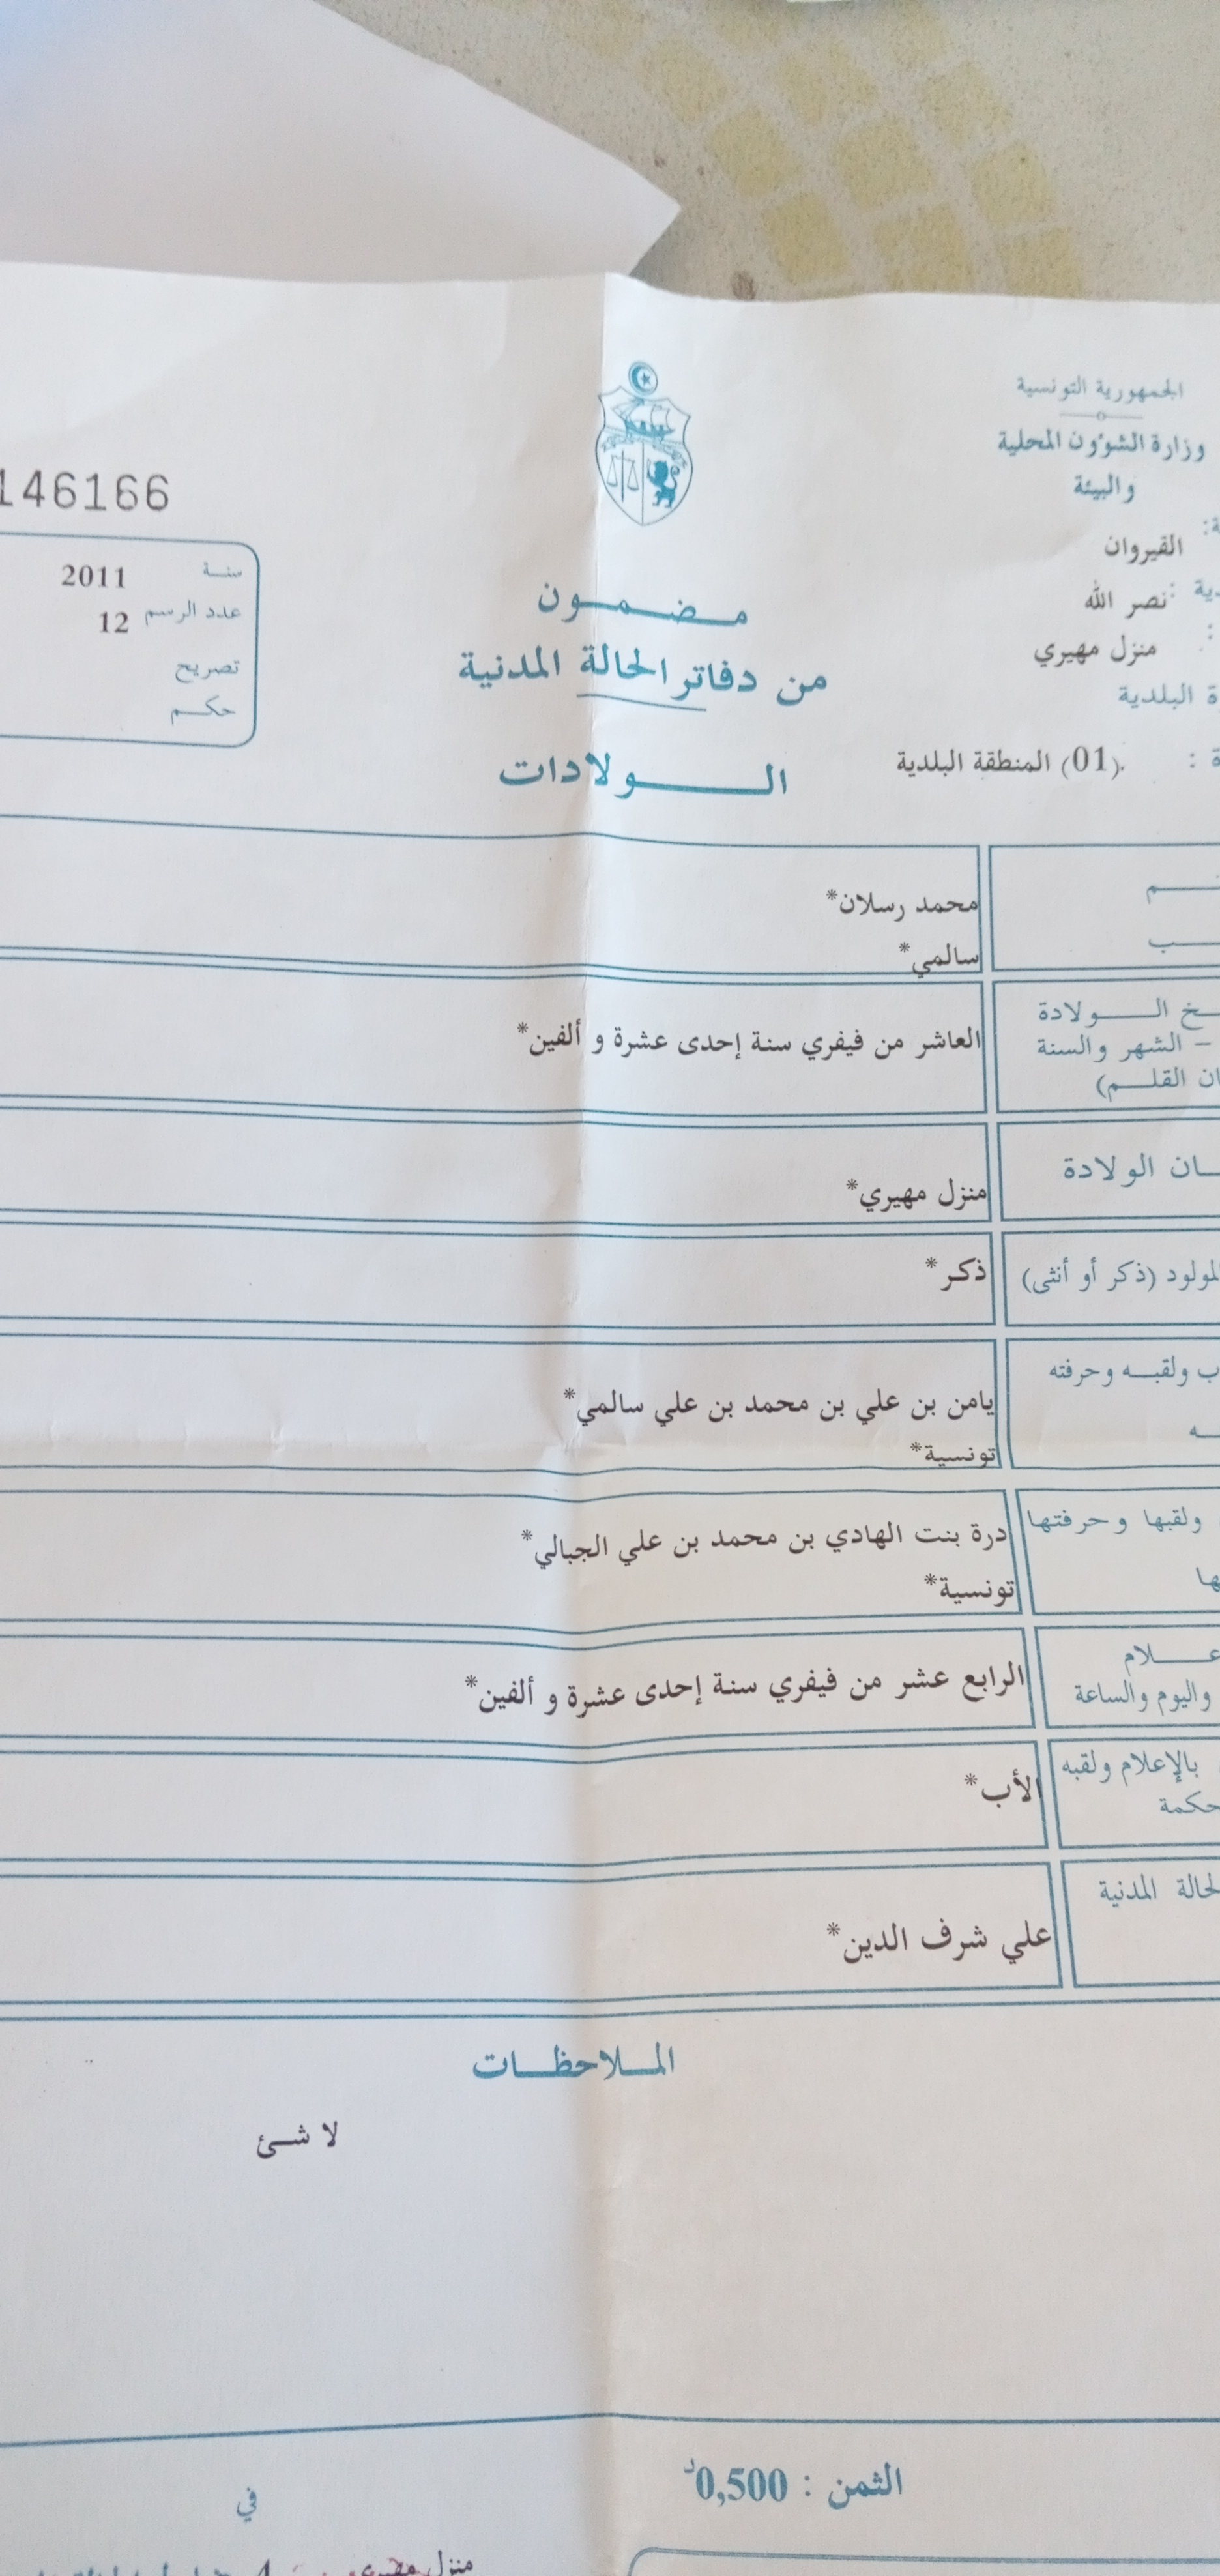 الجمهورية التونسية
وزارة الشؤون المحلية
والبيئة
القيروان
نصر الله
منزل مهيري
البلدية
(01) المنطقة البلدية
146166
سنة 2011
عدد الرسم 12
تصريح
حكم
مضمون
من دفاتر الحالة المدنية
الولادات
محمد رسلان*
سالمي*
الولادة
– الشهر والسنة
القلم)
العاشر من فيفري سنة إحدى عشرة و ألفين*
الولادة
منزل مهيري*
(ذكر أو أنثى)
ذكر*
ولقبه وحرفته
يامن بن علي بن محمد بن علي سالمي*
تونسية*
ولقبها وحرفتها
درة بنت الهادي بن محمد بن علي الجبالي*
تونسية*
واليوم والساعة
الرابع عشر من فيفري سنة إحدى عشرة و ألفين*
بالإعلام ولقبه
الأب*
المدنية
علي شرف الدين*
الملاحظات
لا شئ
الثمن : 0,500د
في
منزل مهيري